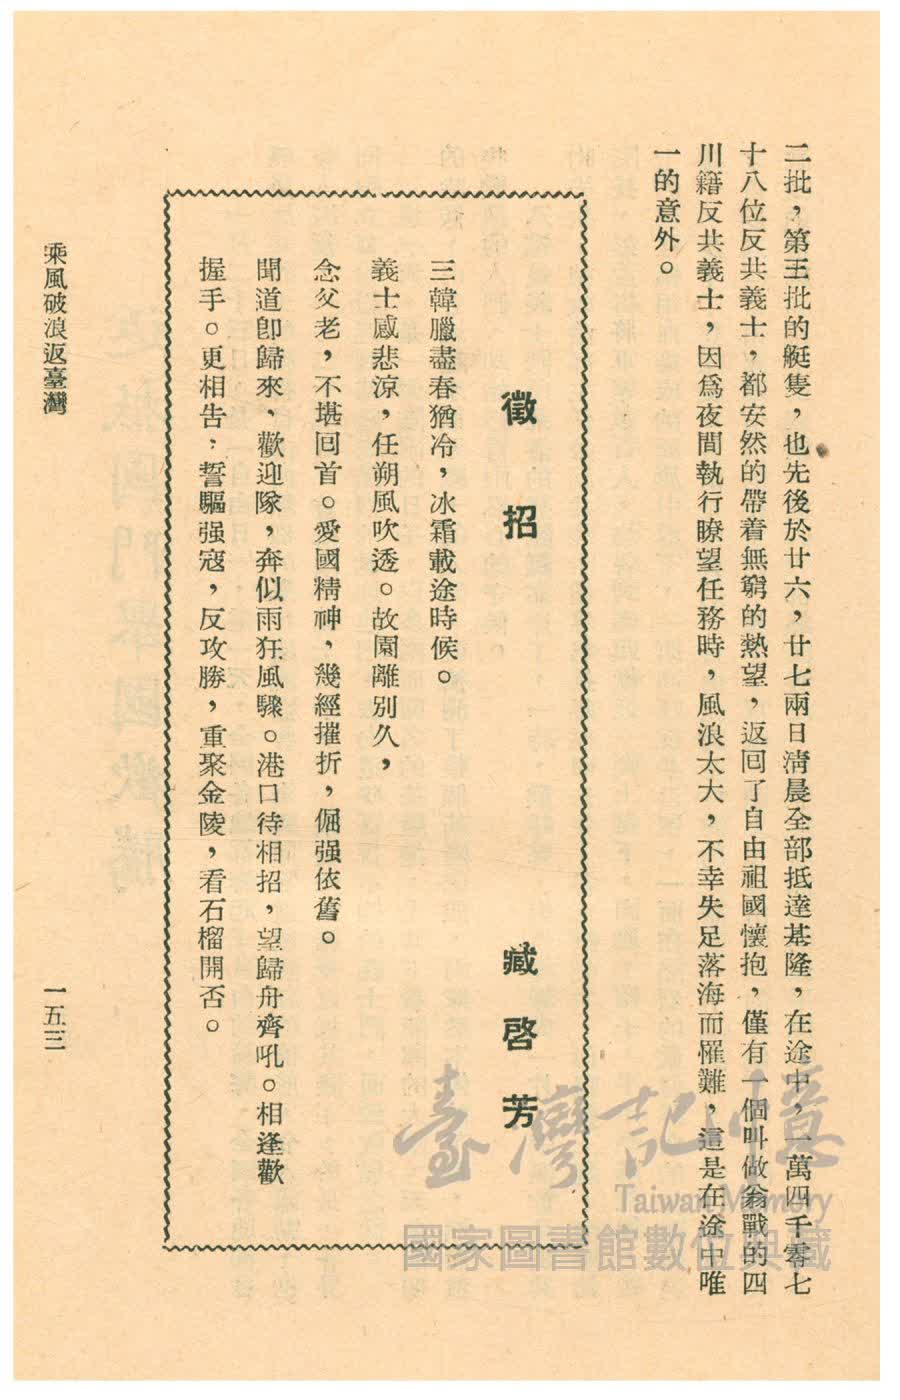 二批，第三批的艇隻，也先後於廿六，廿七兩日淸晨全部抵達基隆，在途中，一萬四千零七
十八位反共義士，都安然的帶着無窮的熱望，返回了自由祖國懷抱，僅有一個叫做翁戰的四
川籍反共義士，因爲夜間執行瞭望任務時，風浪太大，不幸失足落海而罹難，這是在途中唯
一的意外。
徵招　臧啓芳
三韓臘盡春猶冷，冰霜載途時候。
義士感悲涼，任朔風吹透。故園離別久，
念父老，不堪回首。愛國精神，幾經摧折，倔强依舊。
聞道卽歸來，歡迎隊，奔似雨狂風驟。港口待相招，望歸舟齊吼。相逢歡
握手。更相告：誓驅强寇，反攻勝，重聚金陵，看石榴開否。
乘風破浪返臺灣
一五三
臺灣記憶
Taiwan Memory
國家圖書館數位典藏